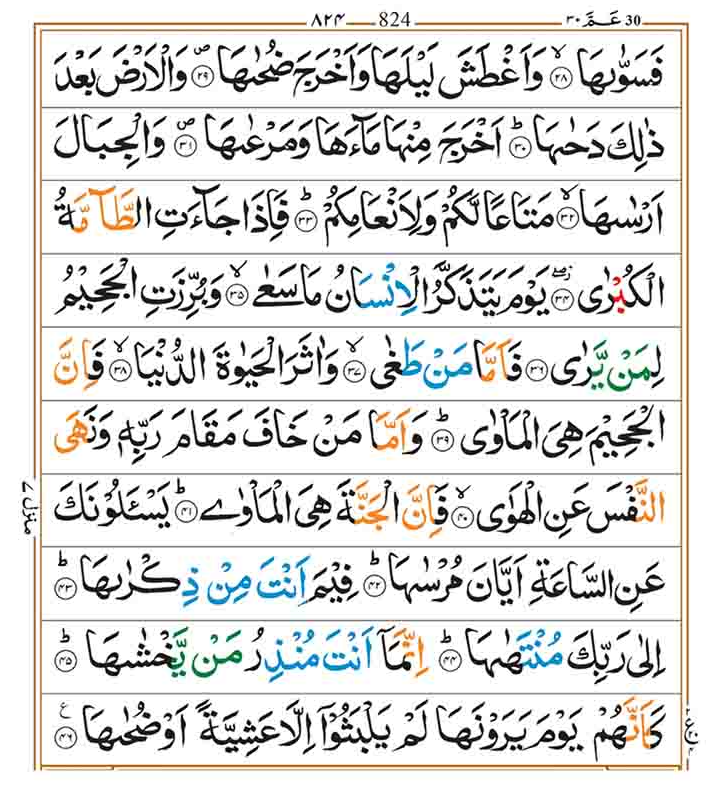 ٨٢٤ 824 عَمَّ ٣٠ 30
فَسَوّٰىهَا ۙ﴿۲۸﴾ وَاَغْطَشَ لَيْلَهَا وَاَخْرَجَ ضُحٰىهَا ۪﴿۲۹﴾ وَالْاَرْضَ بَعْدَ
ذٰلِكَ دَحٰىهَا ؕ﴿۳۰﴾ اَخْرَجَ مِنْهَا مَآءَهَا وَمَرْعٰىهَا ۪﴿۳۱﴾ وَالْجِبَالَ
اَرْسٰىهَا ۙ﴿۳۲﴾ مَتَاعًا لَّكُمْ وَلِاَنْعَامِكُمْ ؕ﴿۳۳﴾ فَاِذَا جَآءَتِ الطَّآمَّةُ
الْكُبْرٰى ۫ۖ﴿۳۴﴾ يَوْمَ يَتَذَكَّرُ الْاِنْسَانُ مَا سَعٰى ۙ﴿۳۵﴾ وَبُرِّزَتِ الْجَحِيْمُ
لِمَنْ يَّرٰى ﴿۳۶﴾ فَاَمَّا مَنْ طَغٰى ۙ﴿۳۷﴾ وَاٰثَرَ الْحَيٰوةَ الدُّنْيَا ۙ﴿۳۸﴾ فَاِنَّ
الْجَحِيْمَ هِىَ الْمَاْوٰى ؕ﴿۳۹﴾ وَاَمَّا مَنْ خَافَ مَقَامَ رَبِّهٖ وَنَهَى
النَّفْسَ عَنِ الْهَوٰى ۙ﴿۴۰﴾ فَاِنَّ الْجَنَّةَ هِىَ الْمَاْوٰى ؕ﴿۴۱﴾ يَسْئَلُوْنَكَ
عَنِ السَّاعَةِ اَيَّانَ مُرْسٰىهَا ؕ﴿۴۲﴾ فِيْمَ اَنْتَ مِنْ ذِكْرٰىهَا ؕ﴿۴۳﴾
اِلٰى رَبِّكَ مُنْتَهٰىهَا ؕ﴿۴۴﴾ اِنَّمَاۤ اَنْتَ مُنْذِرُ مَنْ يَّخْشٰىهَا ؕ﴿۴۵﴾
كَاَنَّهُمْ يَوْمَ يَرَوْنَهَا لَمْ يَلْبَثُوْۤا اِلَّا عَشِيَّةً اَوْ ضُحٰىهَا ﴿۴۶﴾ ع
منزل ۷